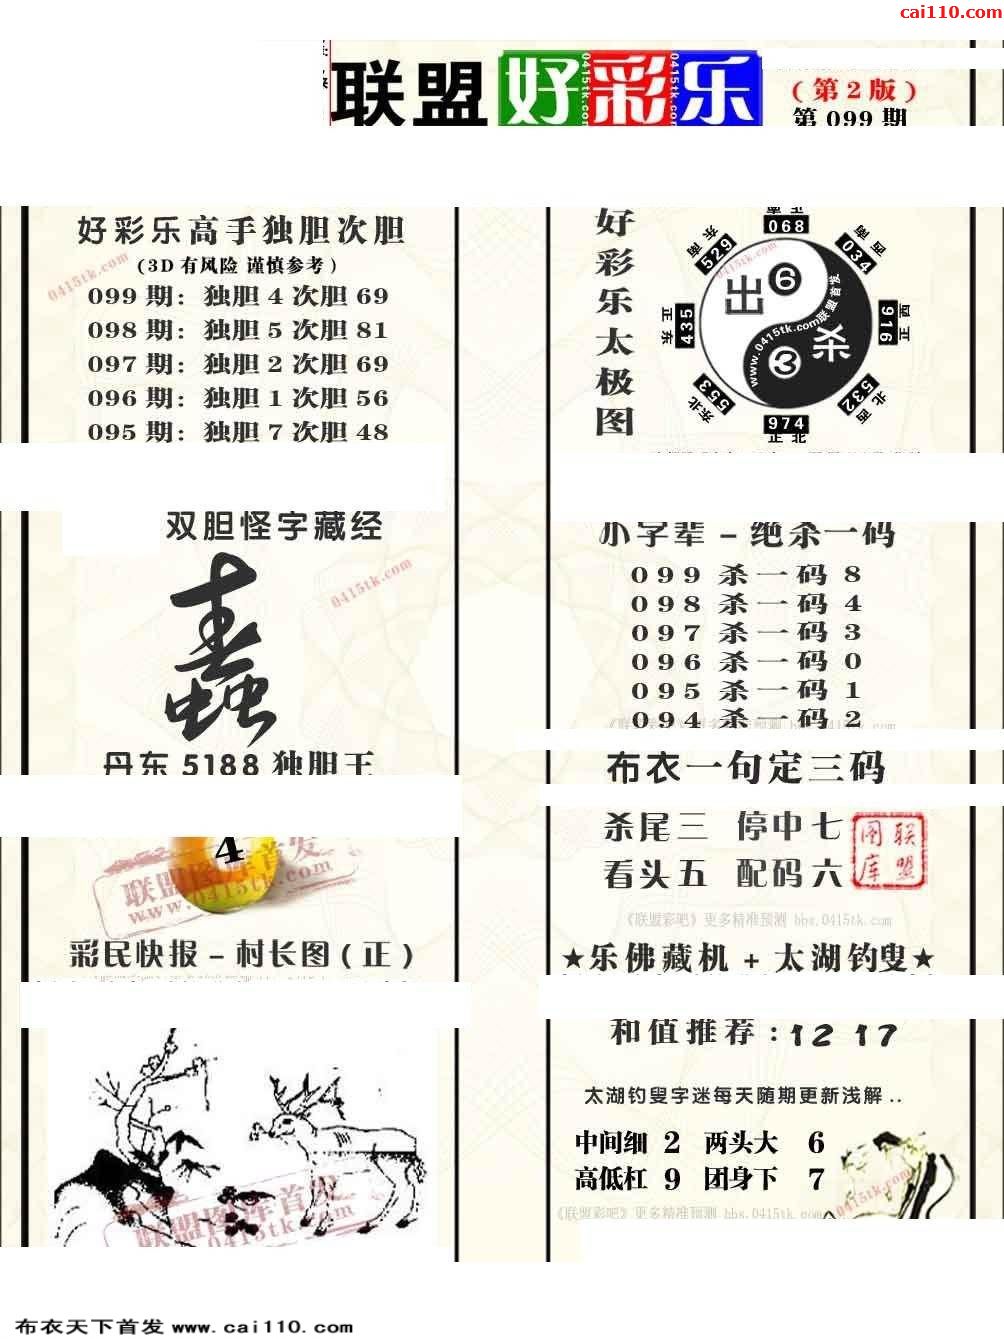 cai110.com
联盟 好彩乐
0415tk.com
0415tk.com
(第2版)
第099期
好彩乐高手独胆次胆
(3D有风险 谨慎参考)
0415tk.com
099期: 独胆4次胆69
098期: 独胆5次胆81
097期: 独胆2次胆69
096期: 独胆1次胆56
095期: 独胆7次胆48
好彩乐太极图
068
东南 529
西南 034
正东 435
正西 916
东北 553
西北 532
974
正北
出 6
3 杀
www.0415tk.com联盟首发
0415tk.com
双胆怪字藏经
0415tk.com
丹东5188独胆王
小字辈-绝杀一码
099杀一码8
098杀一码4
097杀一码3
096杀一码0
095杀一码1
094杀一码2
布衣一句定三码
杀尾三 停中七
看头五 配码六
联盟图库
《联盟彩吧》更多精准预测 bbs.0415tk.com
4
联盟图库首发
www.0415tk.com
彩民快报-村长图(正)
★乐佛藏机+太湖钓叟★
和值推荐:12 17
太湖钓叟字迷每天随期更新浅解..
中间细 2 两头大 6
高低杠 9 团身下 7
《联盟彩吧》更多精准预测 bbs.0415tk.com
0415tk.com
联盟图库首发
0415tk.com
布衣天下首发 www.cai110.com